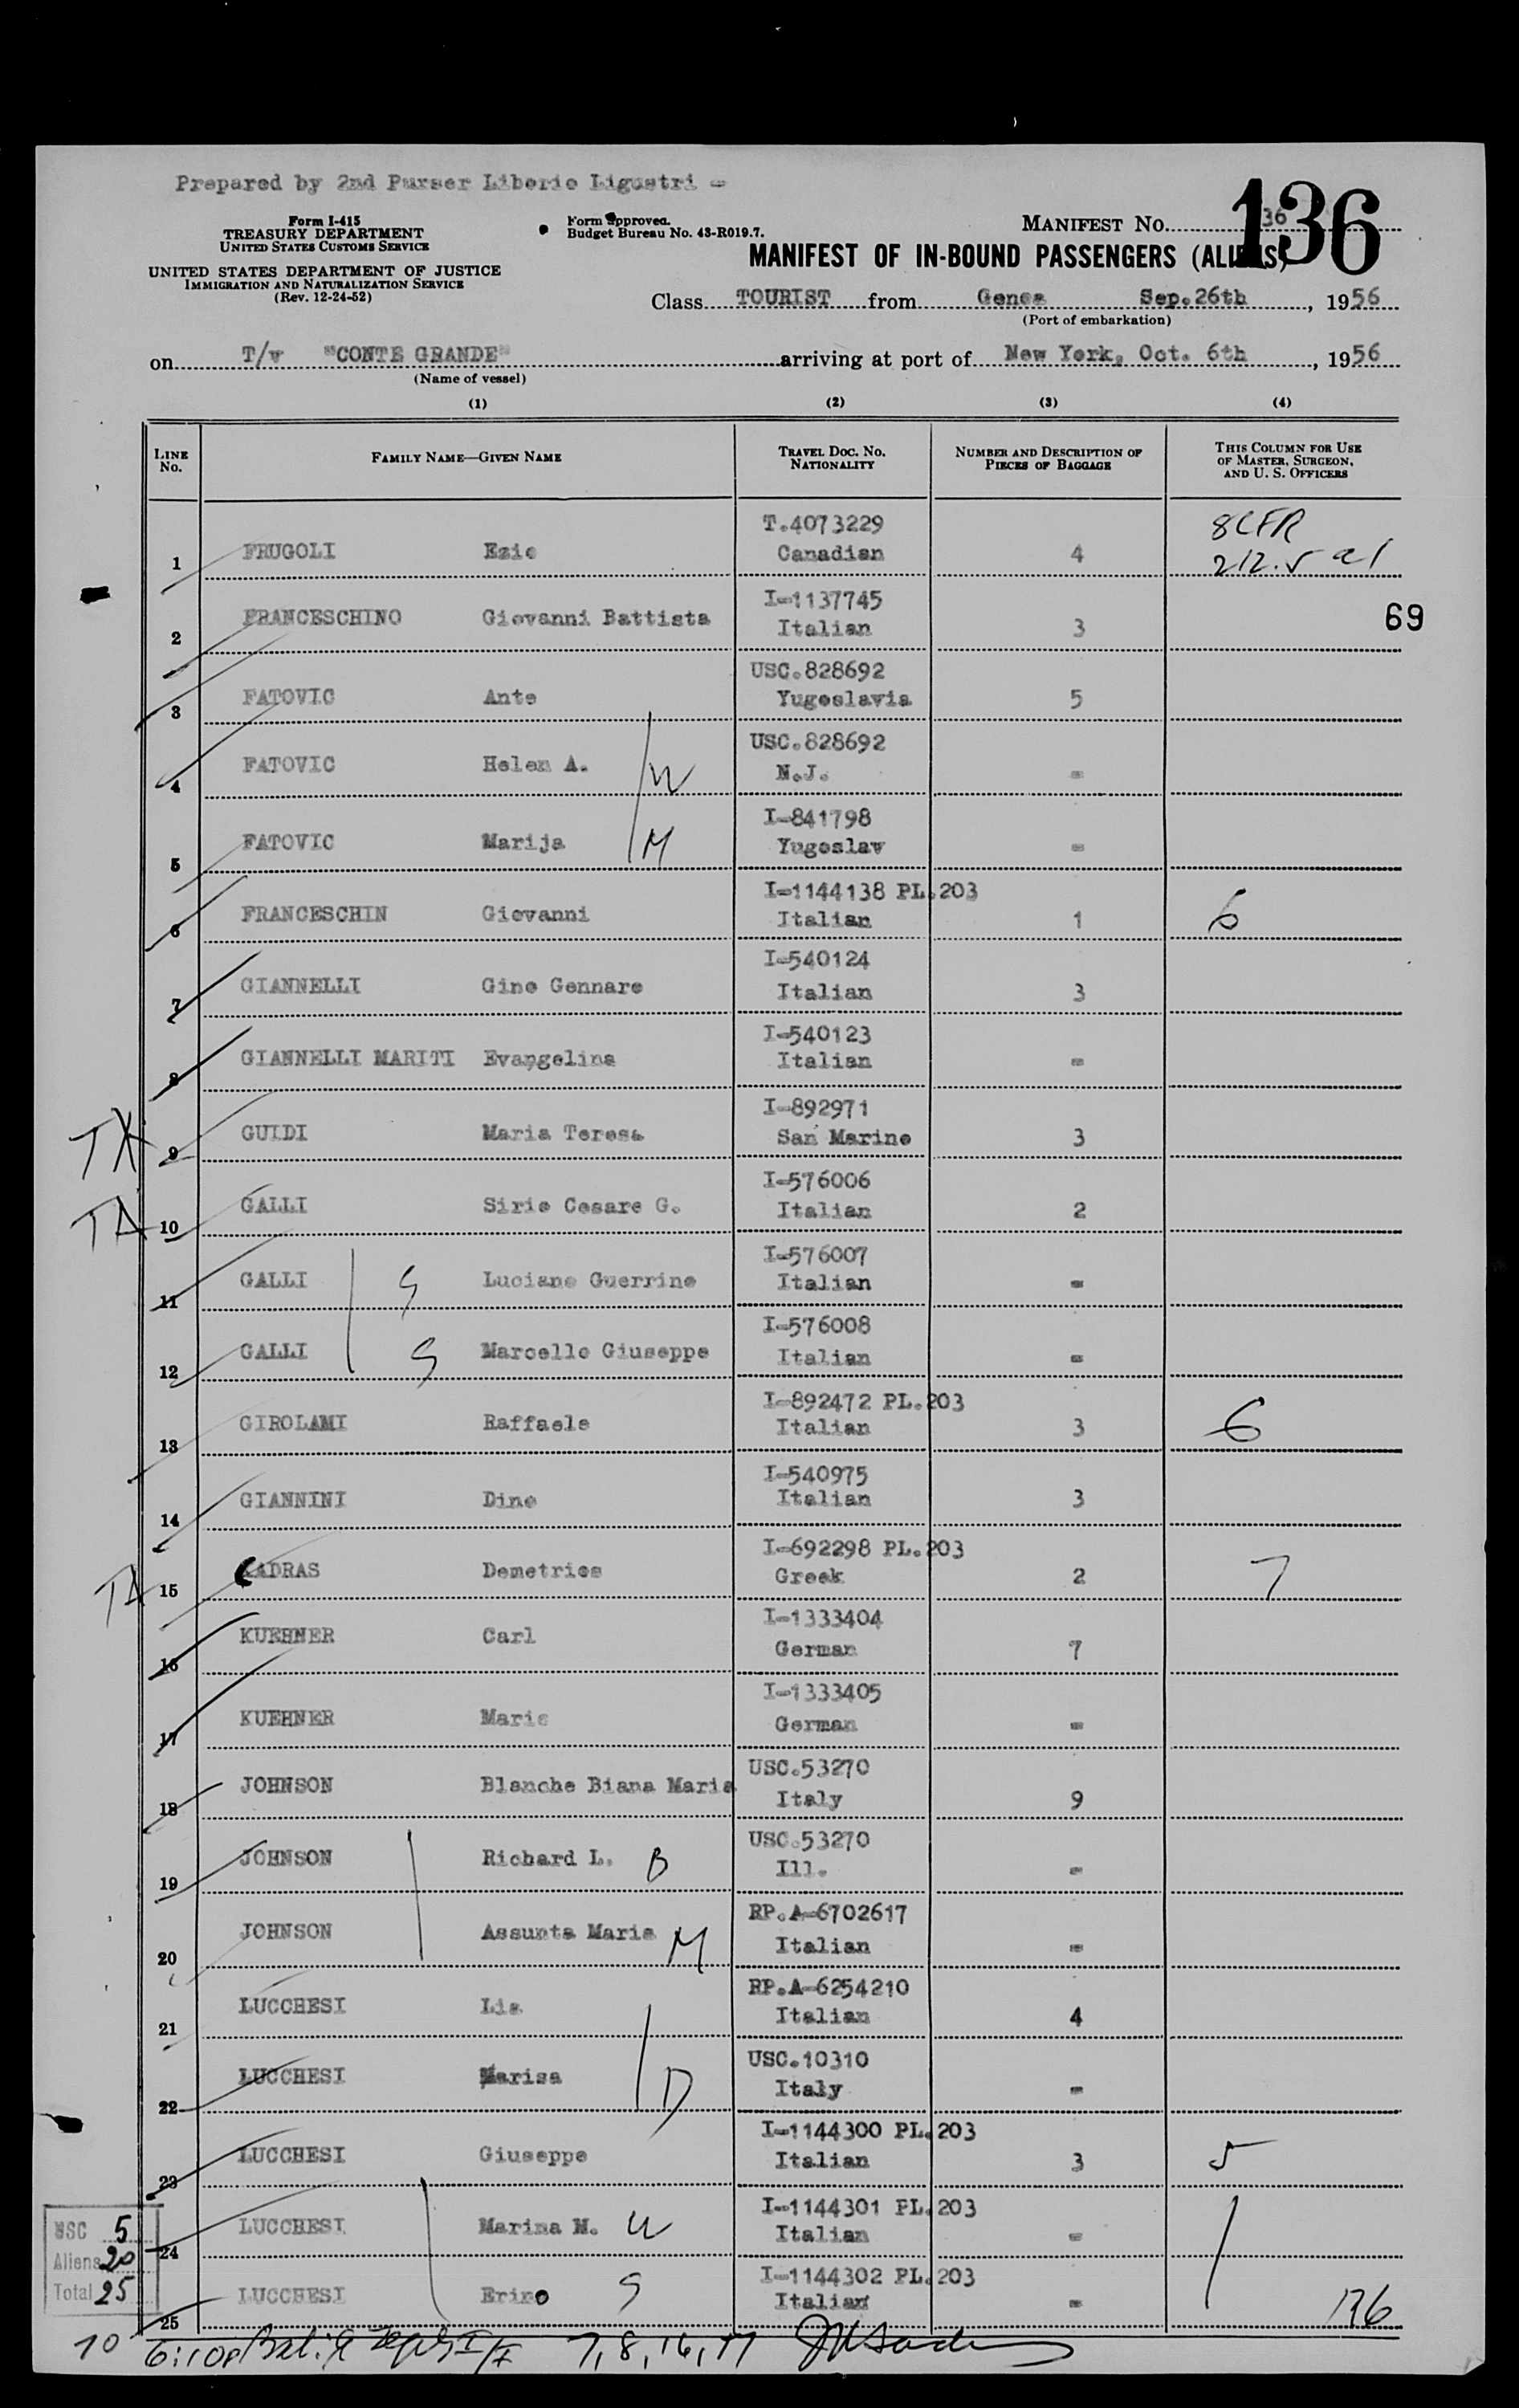 Prepared by 2nd Purser Liberio Ligustri -
Form I-415
TREASURY DEPARTMENT
UNITED STATES CUSTOMS SERVICE
UNITED STATES DEPARTMENT OF JUSTICE
IMMIGRATION AND NATURALIZATION SERVICE
(Rev. 12-24-52)
Form approved.
Budget Bureau No. 43-R019.7.
MANIFEST No. 136
136
MANIFEST OF IN-BOUND PASSENGERS (ALIENS)
Class TOURIST from Genoa Sep.26th, 1956
(Port of embarkation)
on T/v "CONTE GRANDE" arriving at port of New York, Oct. 6th, 1956
(Name of vessel)
(1) (2) (3) (4)
LINE No. FAMILY NAME—GIVEN NAME TRAVEL DOC. No. NATIONALITY NUMBER AND DESCRIPTION OF PIECES OF BAGGAGE THIS COLUMN FOR USE OF MASTER, SURGEON, AND U. S. OFFICERS
T.4073229 8CFR
1 FRUGOLI Ezio Canadian 4 212.5 a1
I-1137745
2 FRANCESCHINO Giovanni Battista Italian 3 69
USC.828692
3 FATOVIC Ante Yugoslavia 5
USC.828692
4 FATOVIC Helen A. W N.J. -
I-841798
5 FATOVIC Marija M Yugoslav -
I-1144138 PL.203
6 FRANCESCHIN Giovanni Italian 1 6
I-540124
7 GIANNELLI Gino Gennaro Italian 3
I-540123
8 GIANNELLI MARITI Evangelina Italian -
I-892971
TX 9 GUIDI Maria Teresa San Marino 3
I-576006
TA 10 GALLI Sirio Cesare G. Italian 2
I-576007
11 GALLI S Luciano Guerrino Italian -
I-576008
12 GALLI S Marcello Giuseppe Italian -
I-892472 PL.203
13 GIROLAMI Raffaele Italian 3 6
I-540975
14 GIANNINI Dino Italian 3
I-692298 PL.203
TA 15 CADRAS Demetrios Greek 2 7
I-1333404
16 KUEHNER Carl German 7
I-1333405
17 KUEHNER Marie German -
USC.53270
18 JOHNSON Blanche Biana Maria Italy 9
USC.53270
19 JOHNSON Richard L. B Ill. -
RP.A-6702617
20 JOHNSON Assunta Maria M Italian -
RP.A-6254210
21 LUCCHESI Lia Italian 4
USC.10310
22 LUCCHESI Marisa D Italy -
I-1144300 PL.203
23 LUCCHESI Giuseppe Italian 3 5
I-1144301 PL.203
24 LUCCHESI Marina M. W Italian -
I-1144302 PL.203
25 LUCCHESI Erino S Italian -
USC 5
Aliens 20
Total 25
136
10 6:10p 7, 8, 16, 17